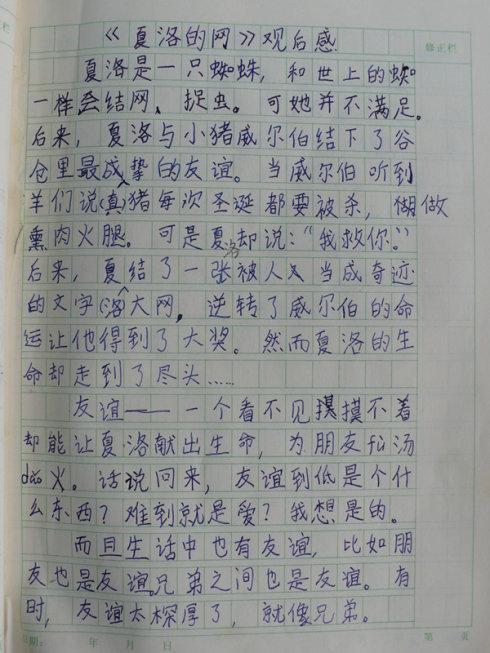 《夏洛的网》观后感
修正栏
夏洛是一只蜘蛛，和世上的蜘
一样会结网、捉虫。可她并不满足。
后来，夏洛与小猪威尔伯结下了谷
仓里最成挚的友谊。当威尔伯听到
羊们说真猪每次圣诞都要被杀，做
熏肉火腿。可是夏洛却说：“我救你。”
后来，夏结了一张被人人当成奇迹
的文字洛大网，逆转了威尔伯的命
运让他得到了大奖。然而夏洛的生
命却走到了尽头……
友谊——一个看不见摸摸不着
却能让夏洛献出生命，为朋友fù汤
dǎo火。话说回来，友谊到低是个什
么东西？难到就是爱？我想是的。
而且生活中也有友谊，比如朋
友也是友谊，兄弟之间也是友谊。有
时，友谊太深厚了，就像兄弟。
日期： 年 月 日 第 页